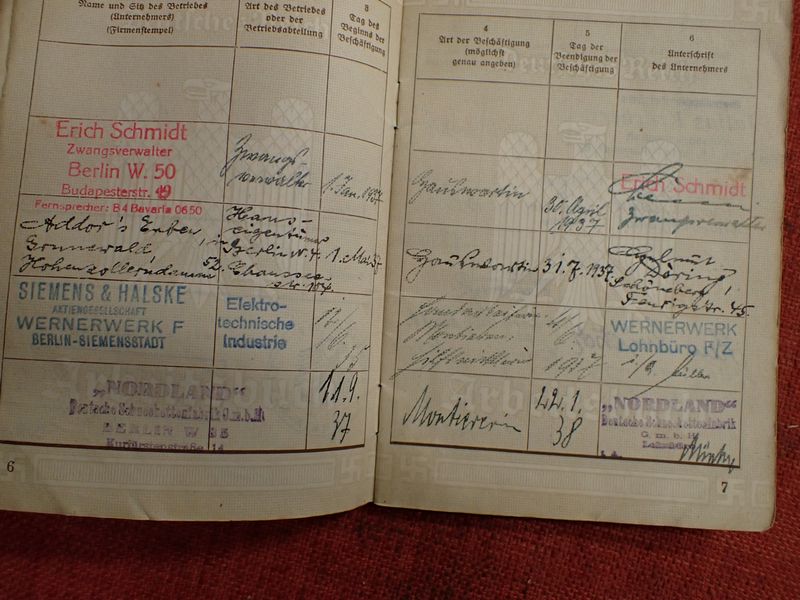 Name und Sitz des Betriebes
(Unternehmers)
(Firmenstempel)
Art des Betriebes
oder der
Betriebsabteilung
3
Tag des
Beginns der
Beschäftigung
Erich Schmidt
Zwangsverwalter
Berlin W. 50
Budapesterstr. 49
Fernsprecher: B4 Bavaria 0650
Zwangs-
verwalter
1. Jan. 1937
Addor's Erben
Grunewald,
Hohenzollerndamm 52.
Haus-
eigentümer
Berlin N. 4.
Chaussee-
str. 104
1. Mai 37
SIEMENS & HALSKE
AKTIENGESELLSCHAFT
WERNERWERK F
BERLIN-SIEMENSSTADT
Elektro-
technische
Industrie
„NORDLAND“
Deutsche Schneekettenfabrik G.m.b.H
BERLIN W 35
Kurfürstenstraße 14
11.9.
37
6
4
Art der Beschäftigung
(möglichst
genau angeben)
5
Tag der
Beendigung der
Beschäftigung
6
Unterschrift
des Unternehmers
Hauswartin
30. April
1937
Erich Schmidt
Zwangsverwalter
Hauswartin
31.7.1937.
Helmut
Döring,
Schöneberg
Feurigstr. 45.
1937
WERNERWERK
Lohnbüro F/Z
Montiererin
22.1.
38
„NORDLAND“
Deutsche Schneekettenfabrik
G.m.b.H
7